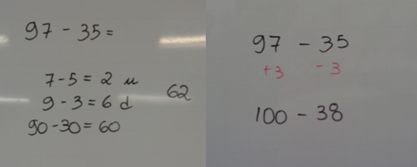 97 - 35 =
7 - 5 = 2 u
9 - 3 = 6 d
62
90 - 30 = 60
97 - 35
+3 - 3
100 - 38